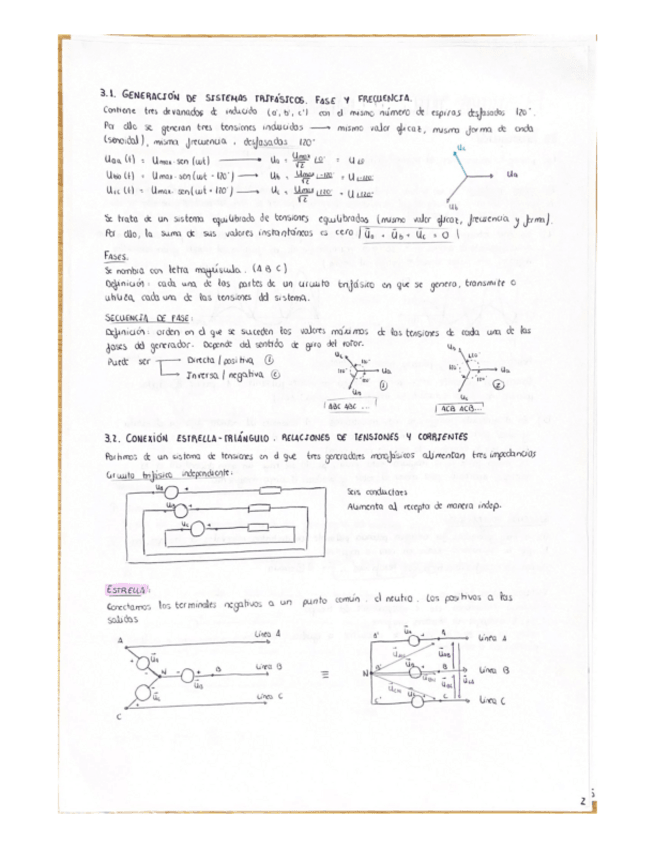 3.1. GENERACIÓN DE SISTEMAS TRIFÁSICOS. FASE Y FRECUENCIA.
Contiene tres devanados de inducido (a', b', c') con el mismo número de espiras desfasados 120°.
Por ello se generan tres tensiones inducidas → mismo valor eficaz, misma forma de onda
(senoidal), misma frecuencia, desfasadas 120°
= Umax · sen (ωt) → Ua = Umax/√2 = U
= Umax · sen (ωt - 120°) → Ub = Umax/√2 = U
= Umax · sen (ωt + 120°) → Uc = Umax/√2 = U
Uc
Ua
Ub
Se trata de un sistema equilibrado de tensiones equilibradas (mismo valor eficaz, frecuencia y forma).
Por ello, la suma de sus valores instantáneos es cero Ua + Ub + Uc = 0
FASES.
Se nombra con letra mayúscula. (A B C)
Definición: cada una de las partes de un circuito trifásico en que se genera, transmite o
utiliza cada una de las tensiones del sistema.
SECUENCIA DE FASE:
Definición: orden en el que se suceden los valores máximos de las tensiones de cada una de las
fases del generador. Depende del sentido de giro del rotor.
Puede ser Directa / positiva ①
Inversa / negativa ②
ABC ABC ...
ACB ACB...
3.2. CONEXIÓN ESTRELLA-TRIÁNGULO. RELACIONES DE TENSIONES Y CORRIENTES
Partimos de un sistema de tensiones en el que tres generadores monofásicos alimentan tres impedancias
Circuito trifásico independiente:
Seis conductores
Alimenta al receptor de manera indep.
ESTRELLA:
Conectamos los terminales negativos a un punto común, el neutro. Los positivos a las
salidas.
A Línea A
N B Línea B
C Línea C
≡
A Línea A
N B Línea B
C Línea C
2